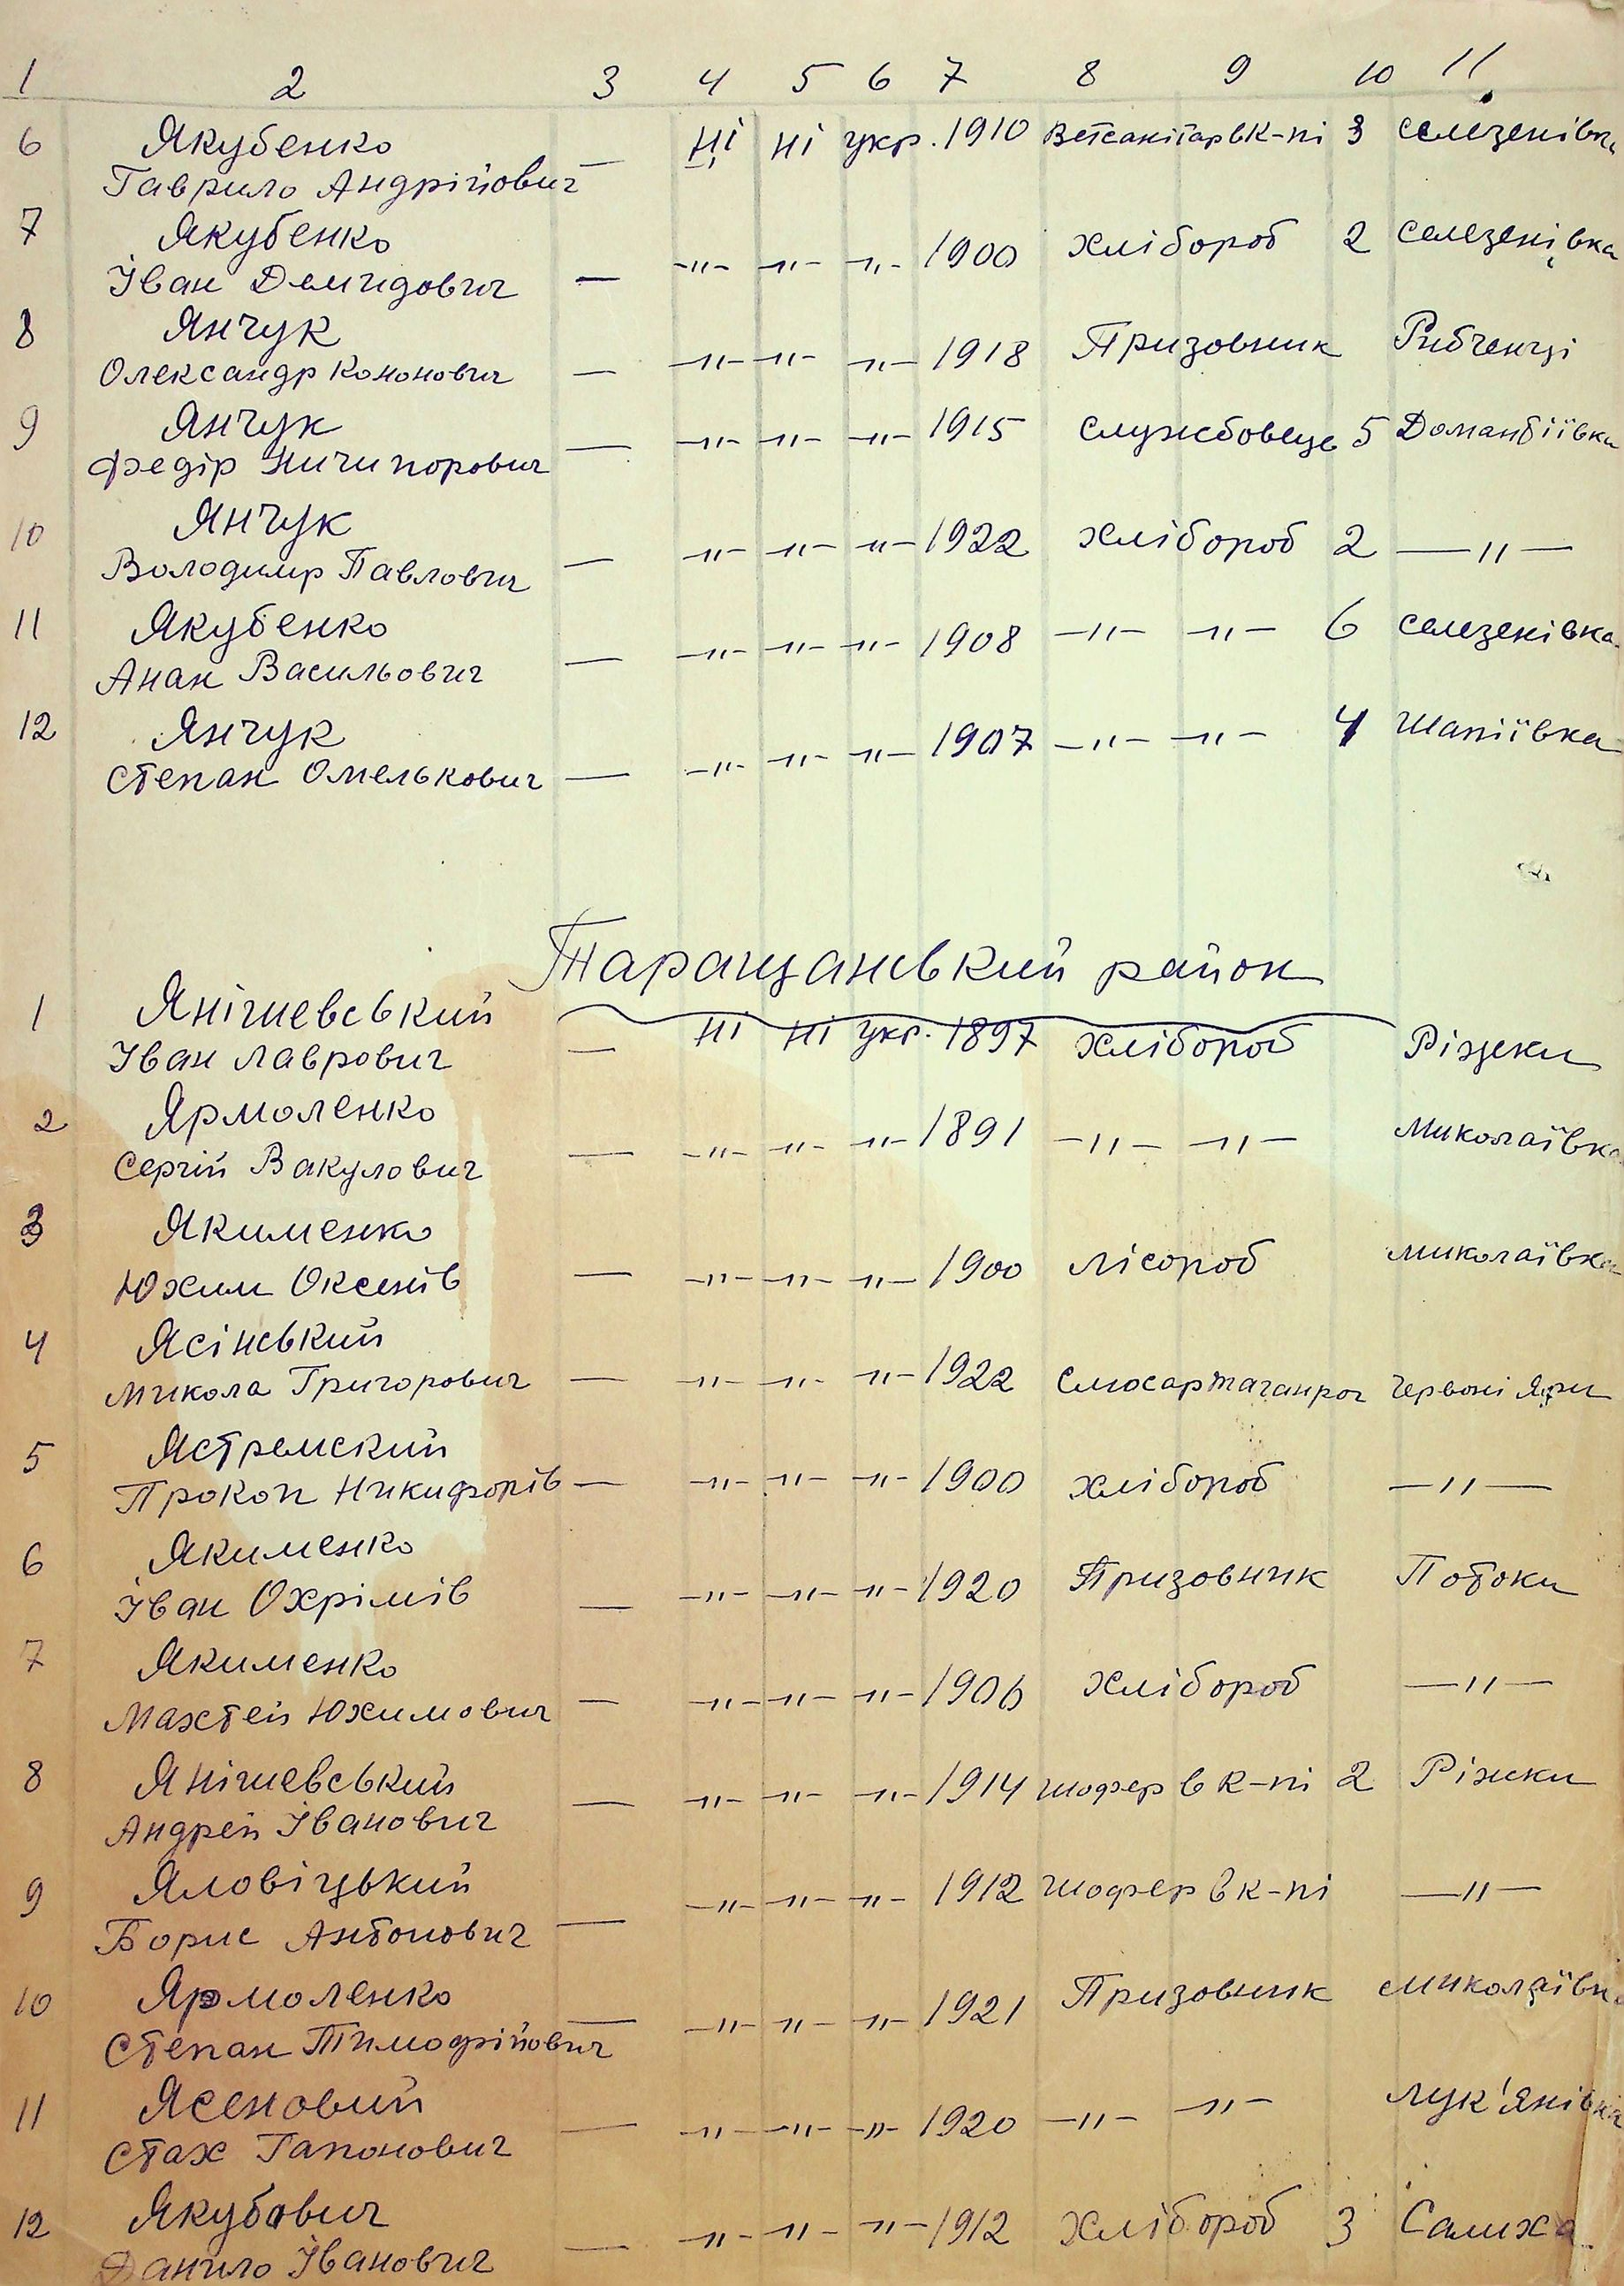 1 2 3 4 5 6 7 8 9 10 11
6 Якубенко — Ні Ні укр. 1910 Ветсанітар в К-пі 3 Селезенівка
Гаврило Андрійович
7 Якубенко — -"- -"- -"- 1900 Хлібороб 2 Селезенівка
Іван Демидович
8 Янчук — -"- -"- -"- 1918 Призовник Рибченці
Олександр Кононович
9 Янчук — -"- -"- -"- 1915 Службовець 5 Домантіївка
Федір Ничипорович
10 Янчук — -"- -"- -"- 1922 Хлібороб 2 —"—
Володимир Павлович
11 Якубенко — -"- -"- -"- 1908 -"- -"- 6 Селезенівка
Анан Васильович
12 Янчук — -"- -"- -"- 1907 -"- -"- 4 Шапіївка
Степан Омелькович
Таращанський район
1 Янішевський — Ні Ні укр. 1897 Хлібороб
Іван Лаврович
2 Ярмоленко — -"- -"- -"- 1891 -"- -"- Миколаївка
Сергій Вакулович
3 Якименко — -"- -"- -"- 1900 Лісороб Миколаївка
Юхим Оксенів
4 Ясінський — -"- -"- -"- 1922 Слюсар Таганрог Червоні Яри
Микола Григорович
5 Ястремский — -"- -"- -"- 1900 Хлібороб —"—
Прокоп Никифорів
6 Якименко — -"- -"- -"- 1920 Призовник Потоки
Іван Охрімів
7 Якименко — -"- -"- -"- 1906 Хлібороб —"—
Махтей Юхимович
8 Янішевський — -"- -"- -"- 1914 шофер в К-пі 2 Ріжки
Андрей Іванович
9 Яловіцький — -"- -"- -"- 1912 шофер в к-пі —"—
Борис Антонович
10 Ярмоленко — -"- -"- -"- 1921 Призовник Миколаївка
Степан Тимофійович
11 Ясеновий — -"- -"- -"- 1920 -"- -"- Лук'янівка
Стах Гапонович
12 Якубович — -"- -"- -"- 1912 Хлібороб 3 Салиха
Данило Іванович